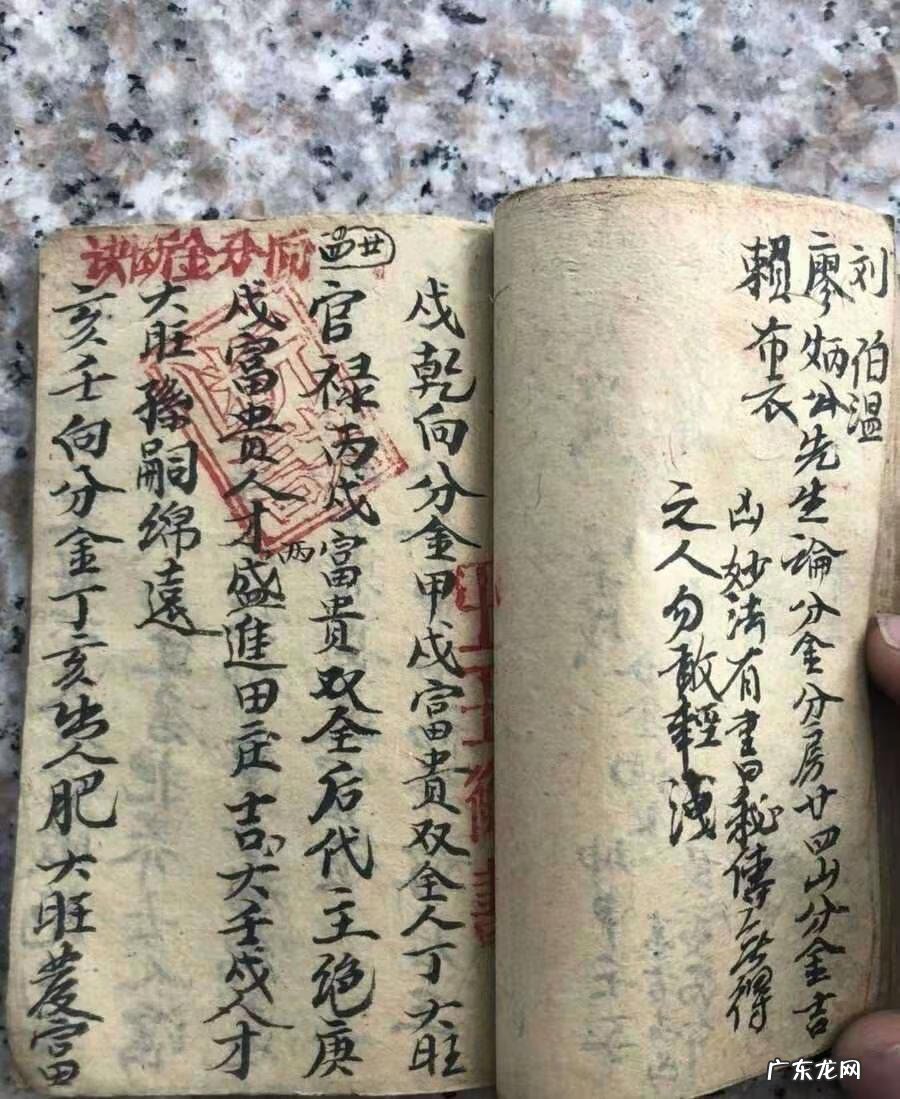 刘伯温
廖炳公先生論分金分房廿四山分金吉
賴布衣
凶妙法有書曰秘傳得
之人勿敢輕洩
廿四向分金断诀
戌乾向分金甲戌富貴双全人丁大旺
官禄丙戌富貴双全后代主绝庚
戌富貴人才盛两進田庄吉大壬戌人才
大旺孫嗣绵遠
亥壬向分金丁亥出人肥大旺發富田
广东龙网